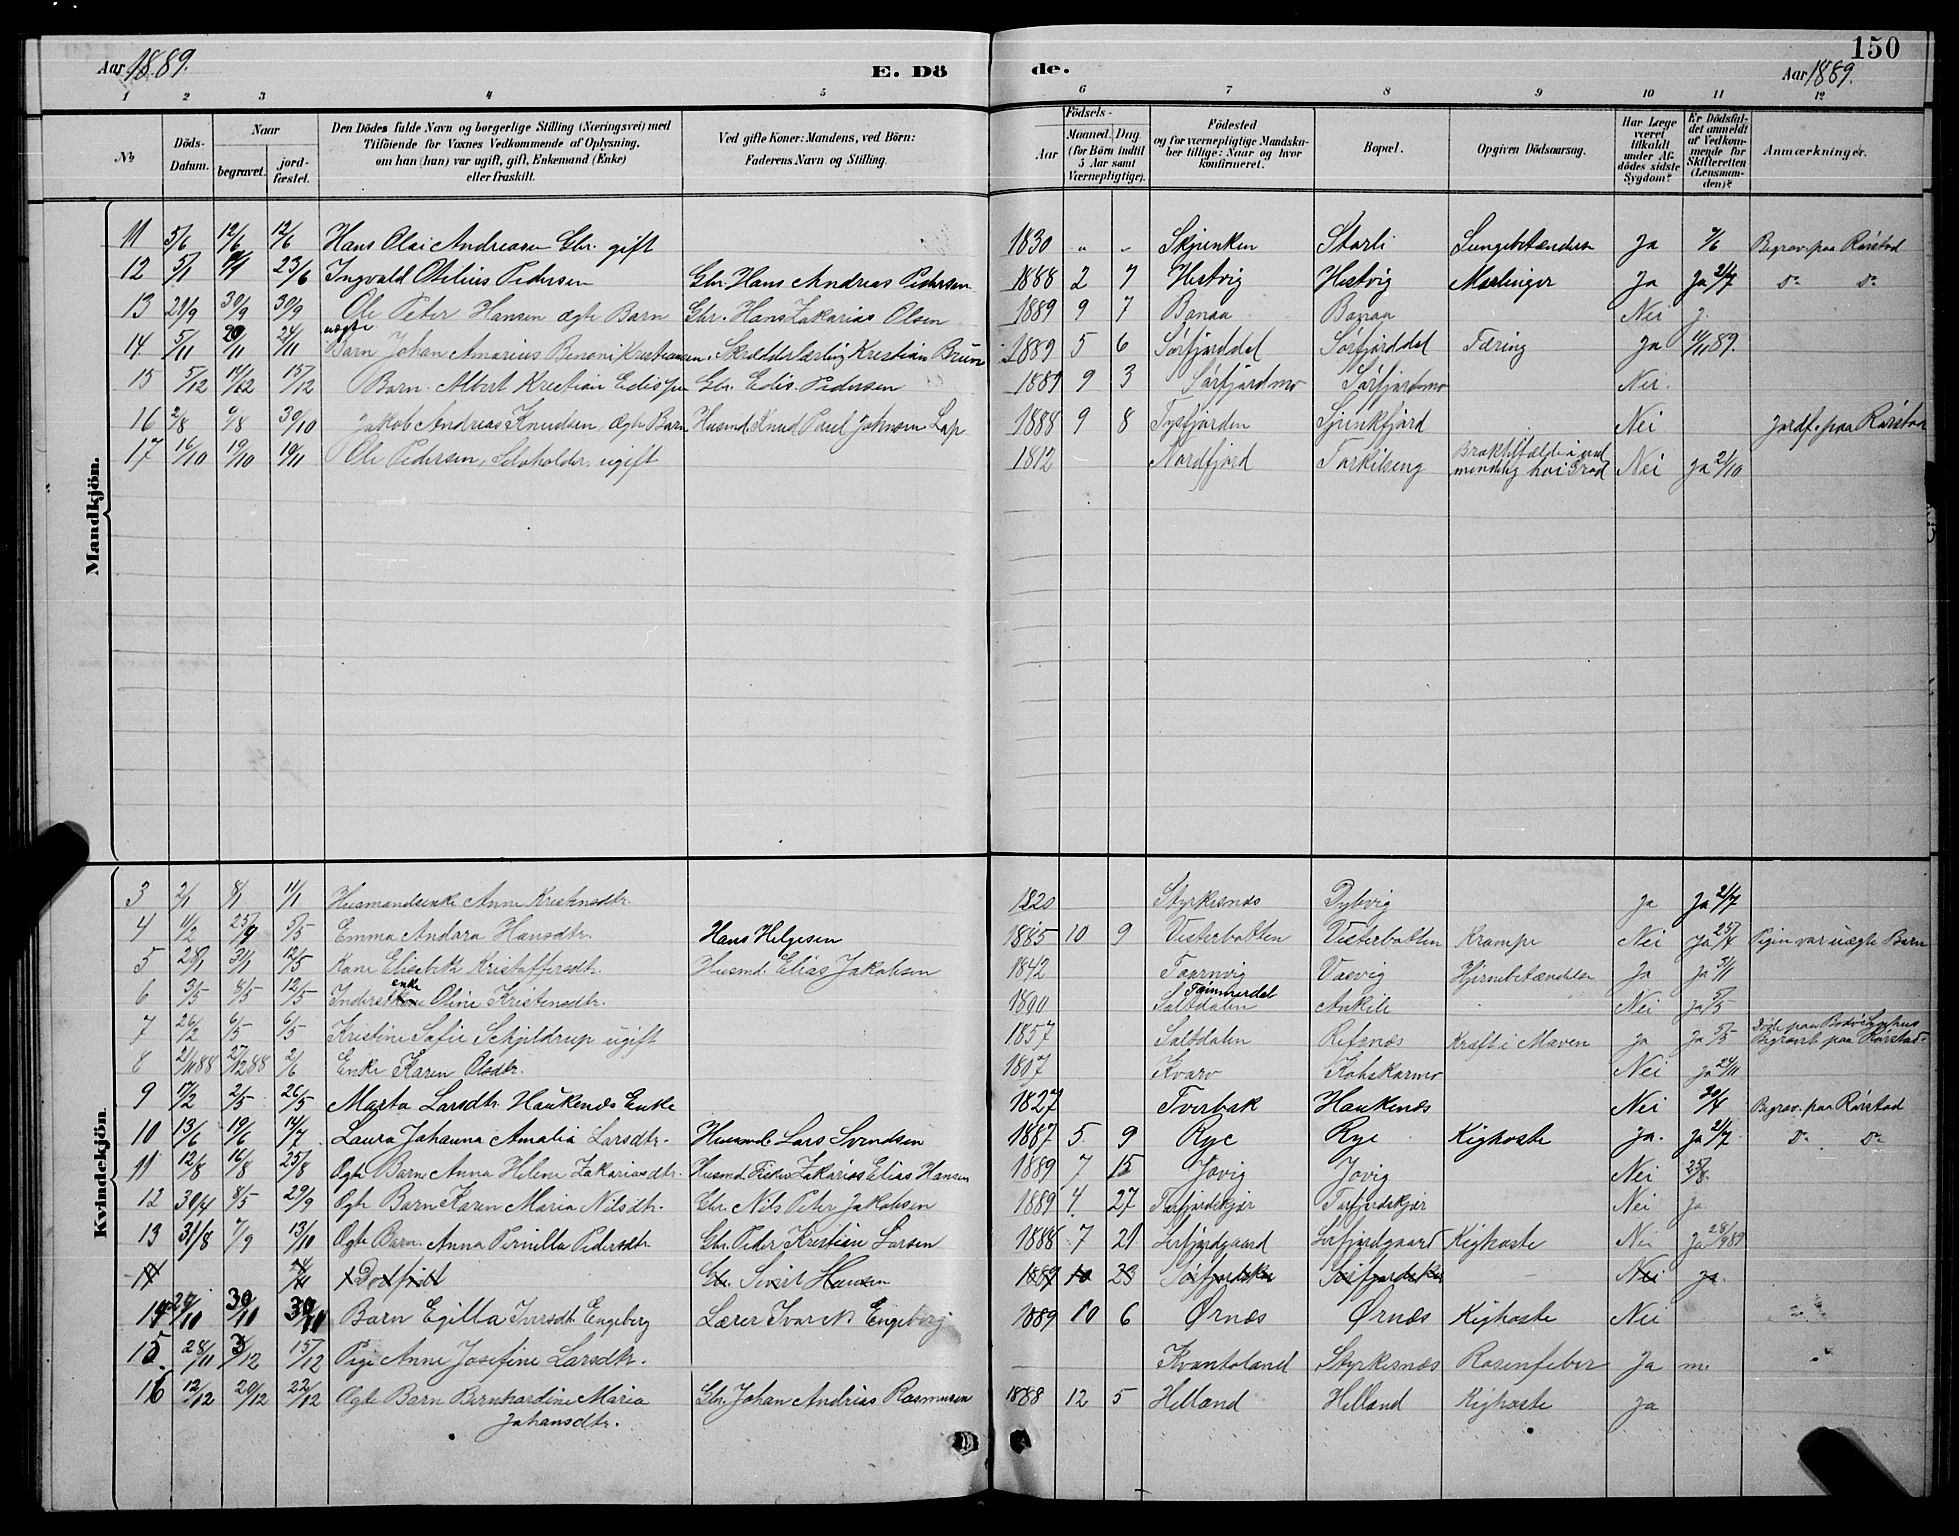 150
Aar 1889.
E. Dö
de.
Aar 1889.
1 2 3 4 5 6 7 8 9 10 11 12
No
Döds-Datum.
Naar
begravet.
jord-fæstet.
Den Dödes fulde Navn og borgerlige Stilling (Næringsvei) med
Tilföiende for Voxnes Vedkommende af Oplysning,
om han (hun) var ugift, gift, Enkemand (Enke)
eller fraskilt.
Ved gifte Koner: Mandens, ved Börn:
Faderens Navn og Stilling.
Födsels-
Aar
Maaned. Dag
(for Börn indtil
5 Aar samt
Værnepligtige).
Födested
og for værnepligtige Mandska-
ber tillige: Naar og hvor
konfirmeret.
Bopæl.
Opgiven Dödsaarsag.
Har Læge
været
tilkaldt
under Af-
dödes sidste
Sygdom?
Er Dödsfal-
det anmeldt
af Vedkom-
mende for
Skifteretten
(Lensman-
den)?
Anmærkninger.
Mandkjön.
11 5/6 12/6 12/6 Hans Olai Andreasen Gbr. gift 1830 " " Skjunken Storli Lungebetændelse Ja 7/6 Begrav. paa Rörstad
12 5/1 9/1 23/6 Ingvald Otelius Pedersen Gbr. Hans Andreas Pedersen 1888 2 7 Hestvig Hestvig Meslinger Ja Ja 2/7 Do Do
13 21/9 30/9 30/9 Ole Peter Hansen ægte Barn Gbr. Hans Zakarias Olsen 1889 9 7 Bonaa Bonaa Nei J.
14 5/11 20/11 24/11 uægte Barn Johan Amarius Benoni Kristiansen. Skrædderlærling Kristian Bruun 1889 5 6 Sörfjorddal Sörfjorddal Tæring Ja 11/11 89.
15 5/12 14/12 15/12 Barn. Albert Kristian Edissen Gbr. Edis. Pedersen 1889 9 3 Sörfjordmo Sörfjordmo Nei.
16 2/8 9/8 30/10 Jakob Andreas Knudsen, ægte Barn Husmd. Knud Paul Johnsen Lap 1888 9 8 Tysfjorden Sjunkfjord Nei Jordf. paa Rörstad
17 16/10 19/10 19/11 Ole Pedersen, ugift 1812 Nordfjord Torkilseng Nei Ja 21/10
Kvindekjön
3 2/1 8/1 11/1 Husmandsenke Anne Kristensdtr. 1820 Styrkesnes Dybvig Ja Ja 21/7
4 11/2 25/9 5/5 Emma Andora Hansdtr. Hans Helgesen 1885 10 9 Vesterbotten Vesterbotten Krampe Nei Ja 25/4 Pigen var uægte Barn
5 28/1 31/1 12/5 Kone Elisabeth Kristoffersdtr. Husmd. Elias Jakobsen 1842 Taarnvig Vasvig Hjernebetændelse Ja Ja 3/1
6 3/5 8/5 12/5 Inderstkone enke Oline Kristensdtr. 1800 Saltdalen Ankile Nei Ja 5/5
7 26/2 6/5 6/5 Kristine Sofie Schjeldrup ugift 1857 Saltdalen Retsnæs Kræft i Maven Ja Ja 5/5 Döde paa Bodö Sygehus Begravet paa Rörstad.
8 2/11 88 27/12 88 2/6 Enke Karen Olsdtr. 1807 Kvarv Kohskarmo Nei Ja 24/11
9 17/2 2/5 26/5 Marta Larsdtr. Haukenæs Enke 1827 Tverbak Haukenæs Nei 30/4 Begrav. paa Rörstad
10 13/6 19/6 14/7 Laura Johanna Amalia Larsdtr. Husmd. Lars Svendsen 1887 5 9 Rye Rye Kighoste Ja. Ja 2/7 Do Do
11 12/8 16/8 25/8 Ægte Barn Anna Helene Zakariasdtr. Husmd. Fisker Zakarias Elias Hansen 1889 7 15 Jovig Jovig Nei 25/8.
12 30/4 8/5 29/9 Ægte Barn Karen Maria Nilsdtr. Gbr. Nils Peter Jakobsen 1889 4. 27 Torfjordskjær Torfjordskjær Nei Ja.
13 31/8 7/9 13/10 Ægte Barn. Anna Pernilla Pedersdtr. Gbr. Peder Kristian Larsen 1888 7 21 Leirfjordgaard Leirfjordgaard Kighoste Nei Ja 28/9 89
14 Dödfödt Gbr. Sivert Hansen 1889 10 23 Nei Ja.
14 20/10 30/10 30/11 Barn Egilla Iversdtr. Engeberg Lærer Ivar N. Engeberg 1889 10 6 Ørnæs Ørnæs Kighoste Nei
15 28/11 3/12 15/12 Pige Anne Josefine Larsdtr. Kvantoland Styrkesnæs Rosenfeber Ja m.
16 12/12 20/12 22/12 Ægte Barn Bernhardine Maria Gbr. Johan Andrias Rasmusen 1888 12 5 Helland Helland Kighoste Ja
Johansdtr.